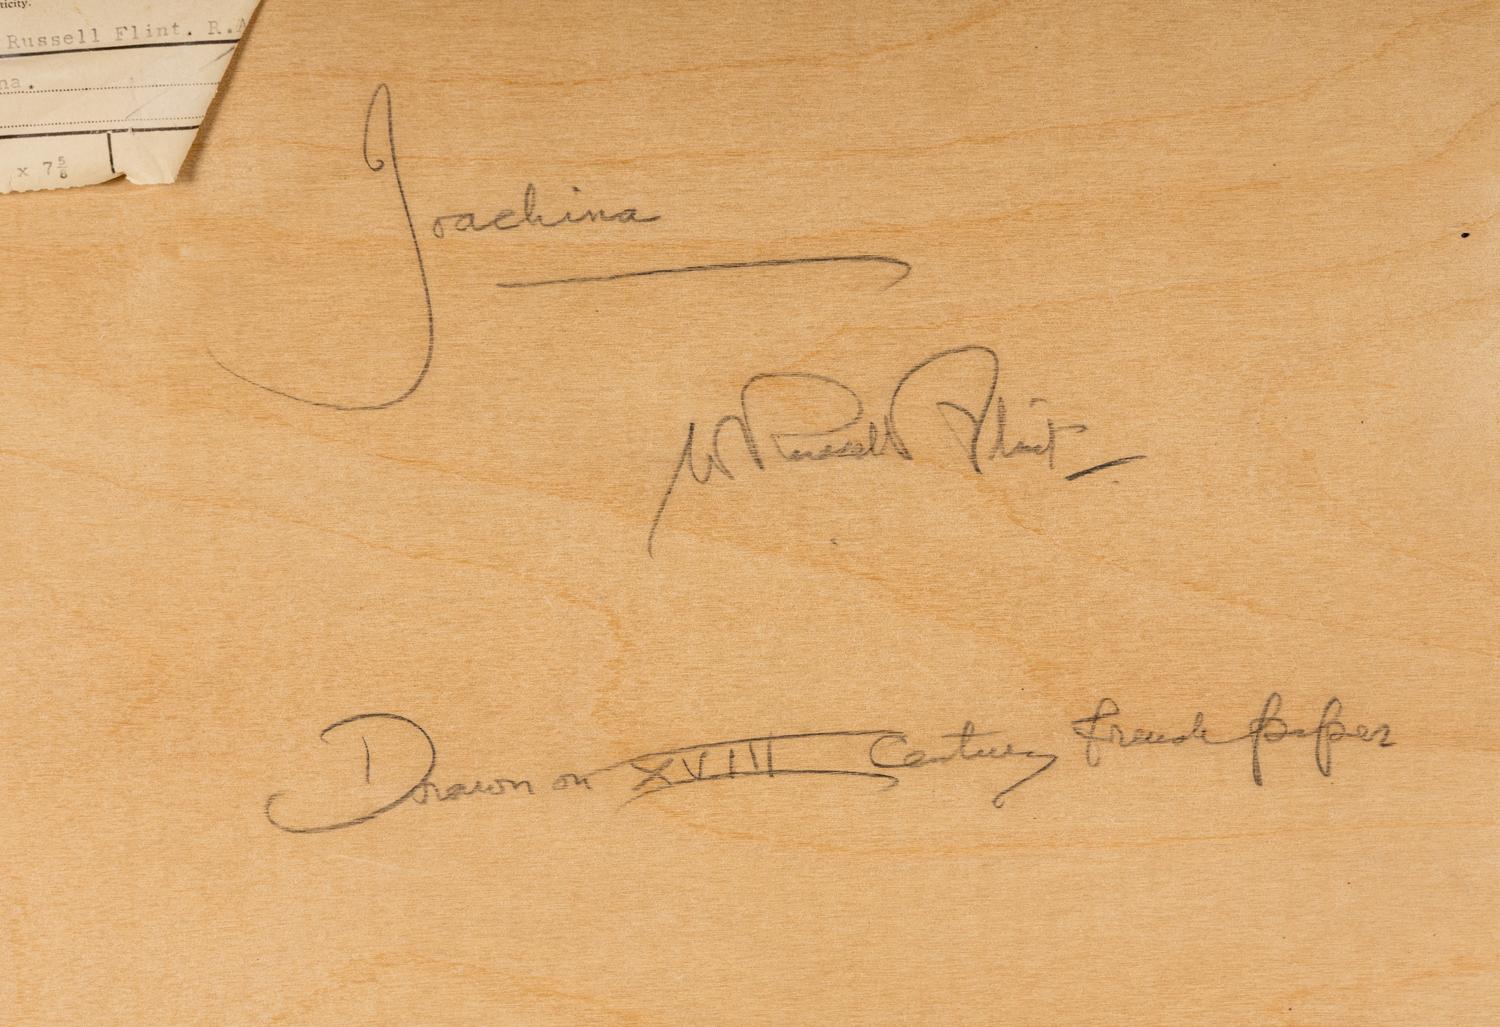 ticity.
Russell Flint. R.A
na.
x 7 5/8
Joachina
W Russell Flint
Drawn on XVIII Century French paper